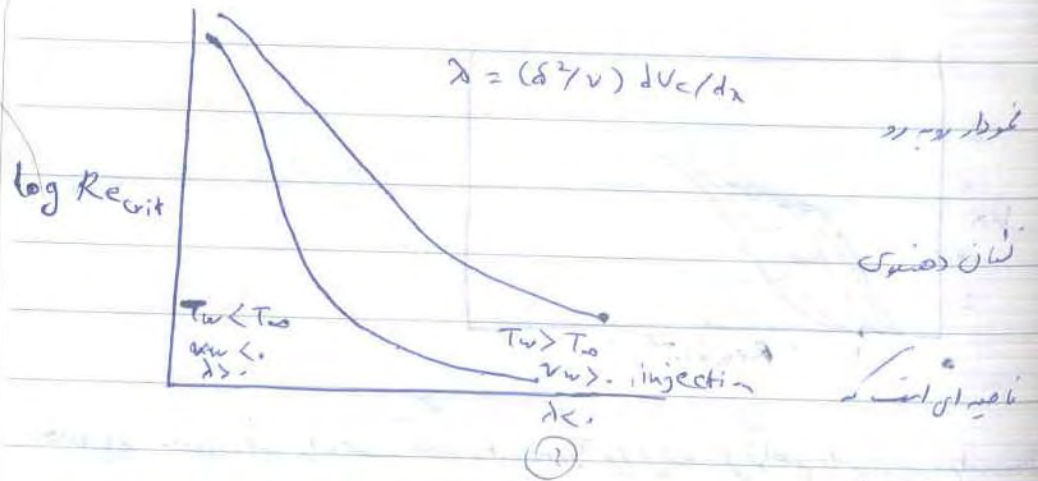 λ = (δ²/ν) dVe/dx
نمودار روبه رو
log Re crit
نشان دهنده‌ی
Tw < T∞
Tw > T∞
vw < ۰
vw > ۰ , injection
ناحیه ای است که
λ > ۰
λ < ۰